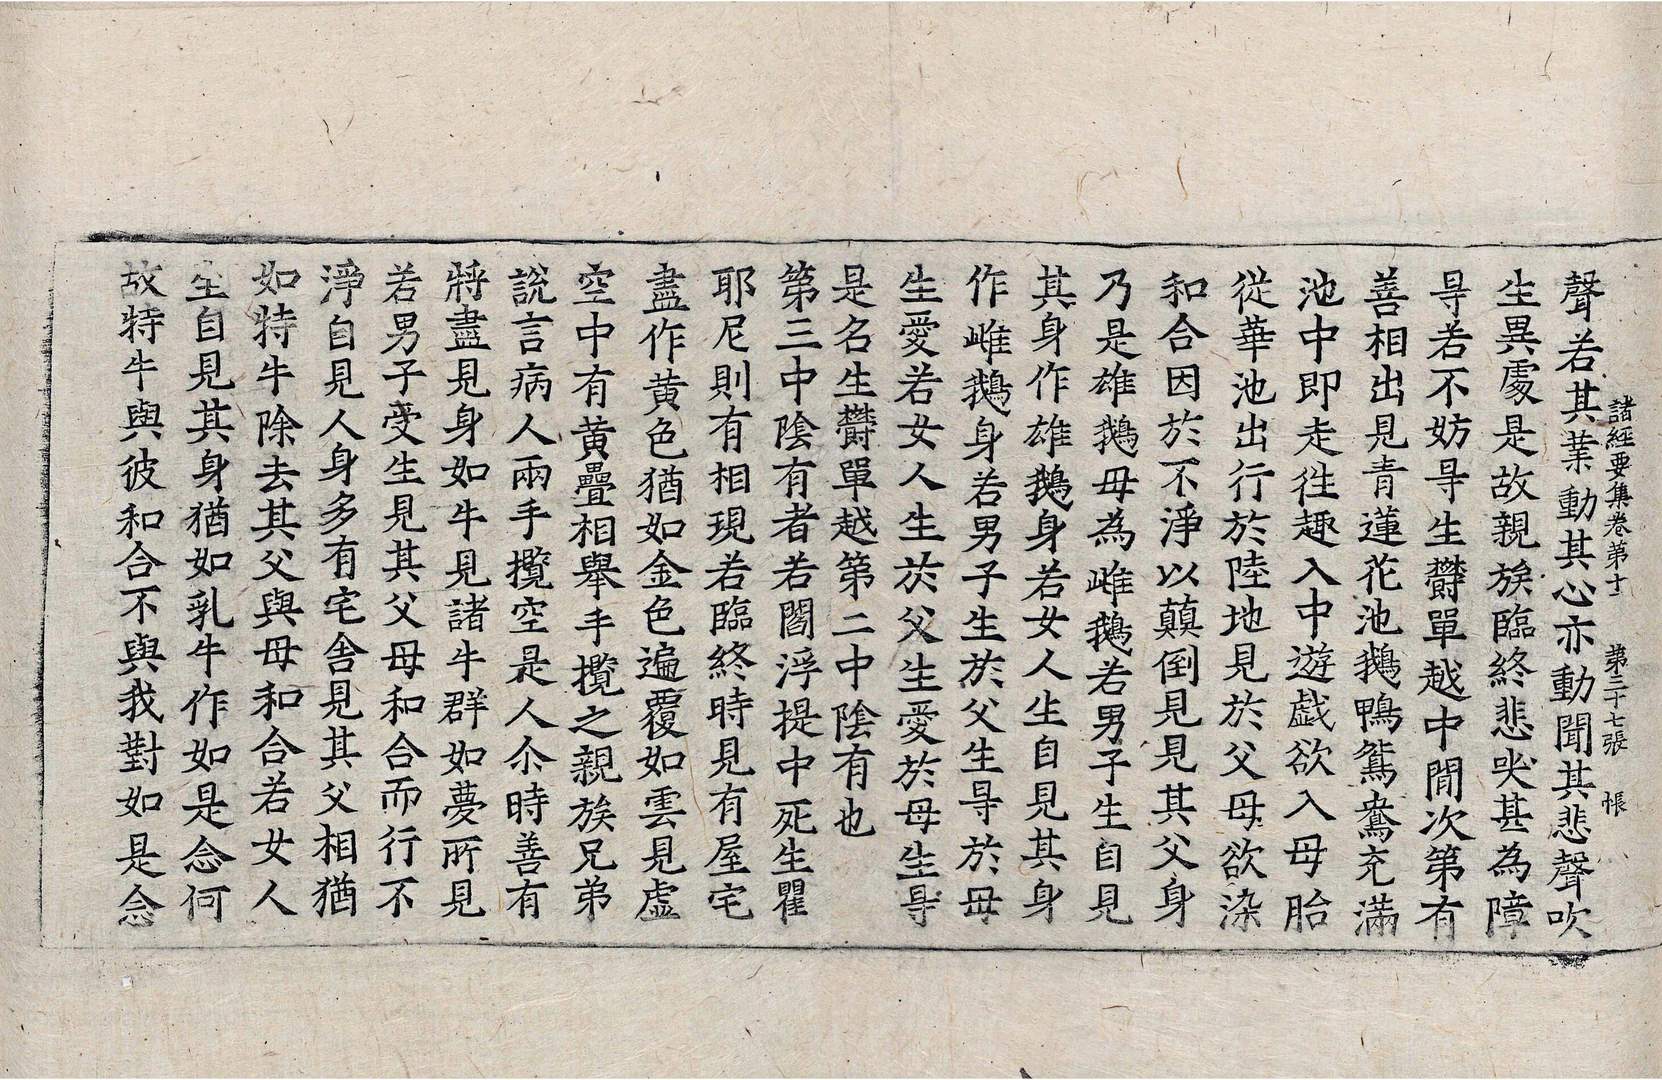 諸經要集卷第十 第三十七張 悵
聲若其業動其心亦動聞其悲聲吹
生異處是故親族臨終悲哭甚為障
㝵若不妨㝵生欝單越中間次第有
善相出見青蓮花池鵝鴨鴛鴦充滿
池中即走徃趣入中遊戲欲入母胎
從華池出行於陸地見於父母欲染
和合因於不淨以顛倒見見其父身
乃是雄鵝母為雌鵝若男子生自見
其身作雄鵝身若女人生自見其身
作雌鵝身若男子生於父生㝵於母
生愛若女人生於父生愛於母生㝵
是名生欝單越第二中陰有也
第三中陰有者若閻浮提中死生瞿
耶尼則有相現若臨終時見有屋宅
盡作黄色猶如金色遍覆如雲見虛
空中有黄疊相舉手攬之親族兄弟
說言病人兩手攬空是人尒時善有
將盡見身如牛見諸牛群如夢所見
若男子受生見其父母和合而行不
淨自見人身多有宅舍見其父相猶
如特牛除去其父與母和合若女人
生自見其身猶如乳牛作如是念何
故特牛與彼和合不與我對如是念